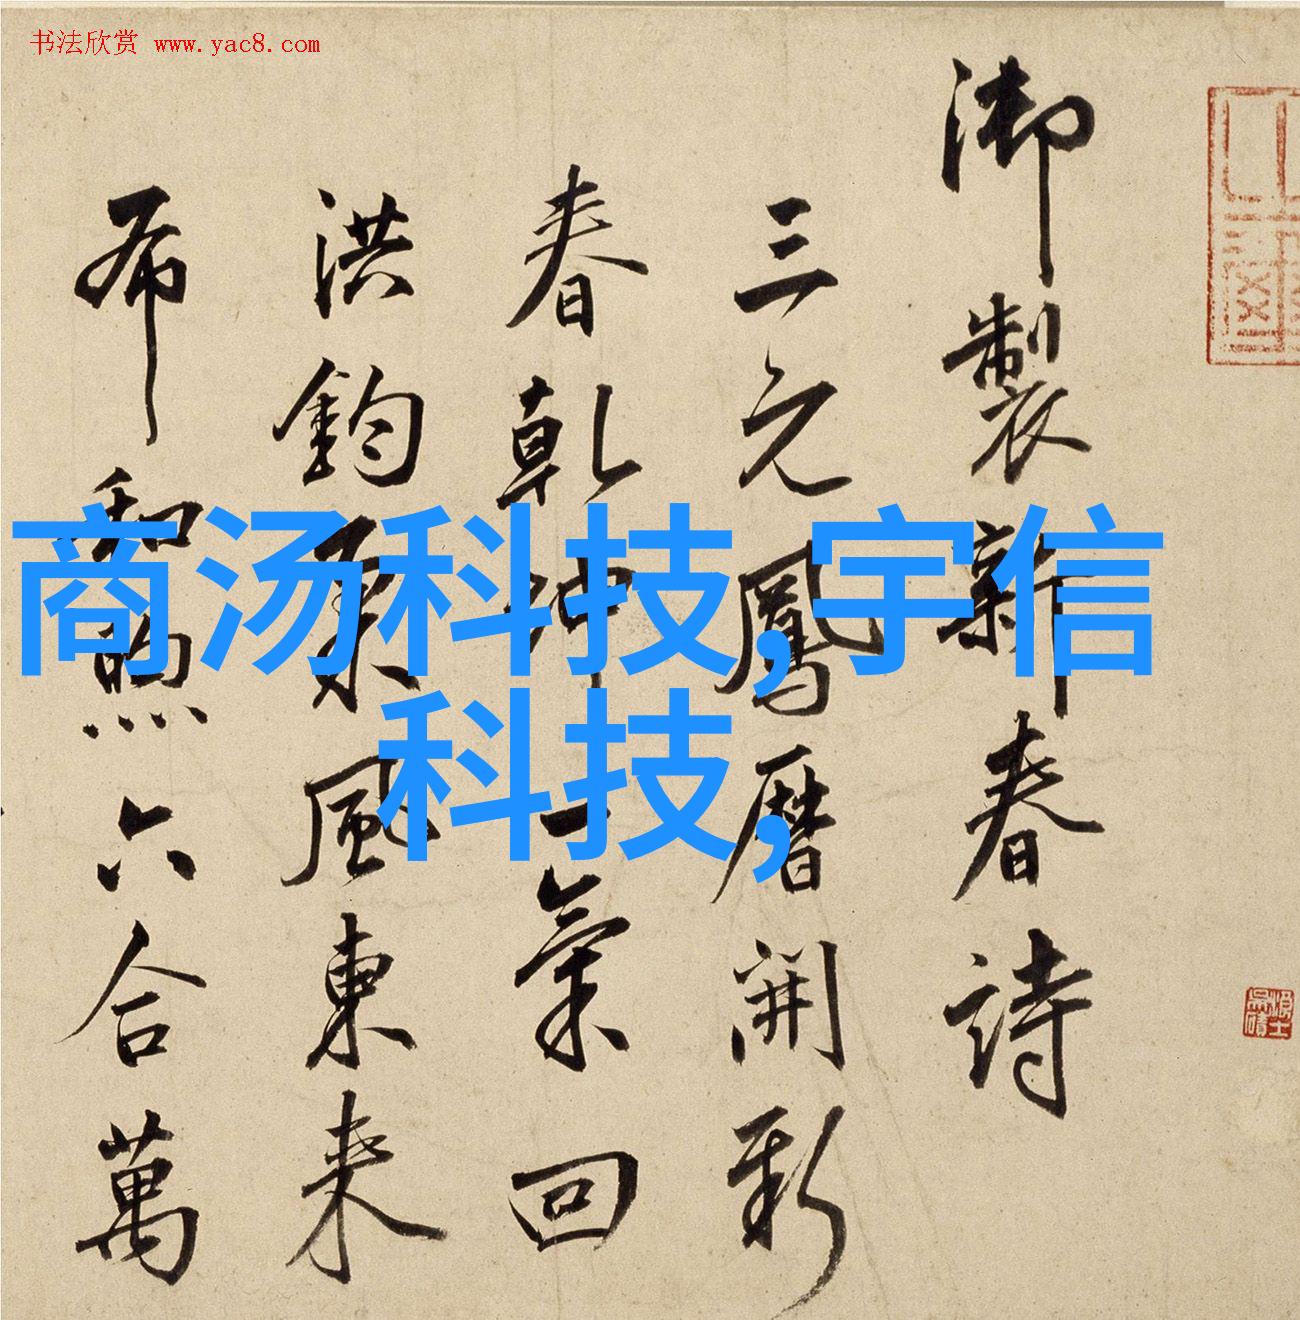 书法欣赏 www.yac8.com
御製新春詩
三元鳳曆開新
春乾坤一氣回
洪鈞風東来
布和煦六合萬
商汤科技,宇信
科技,